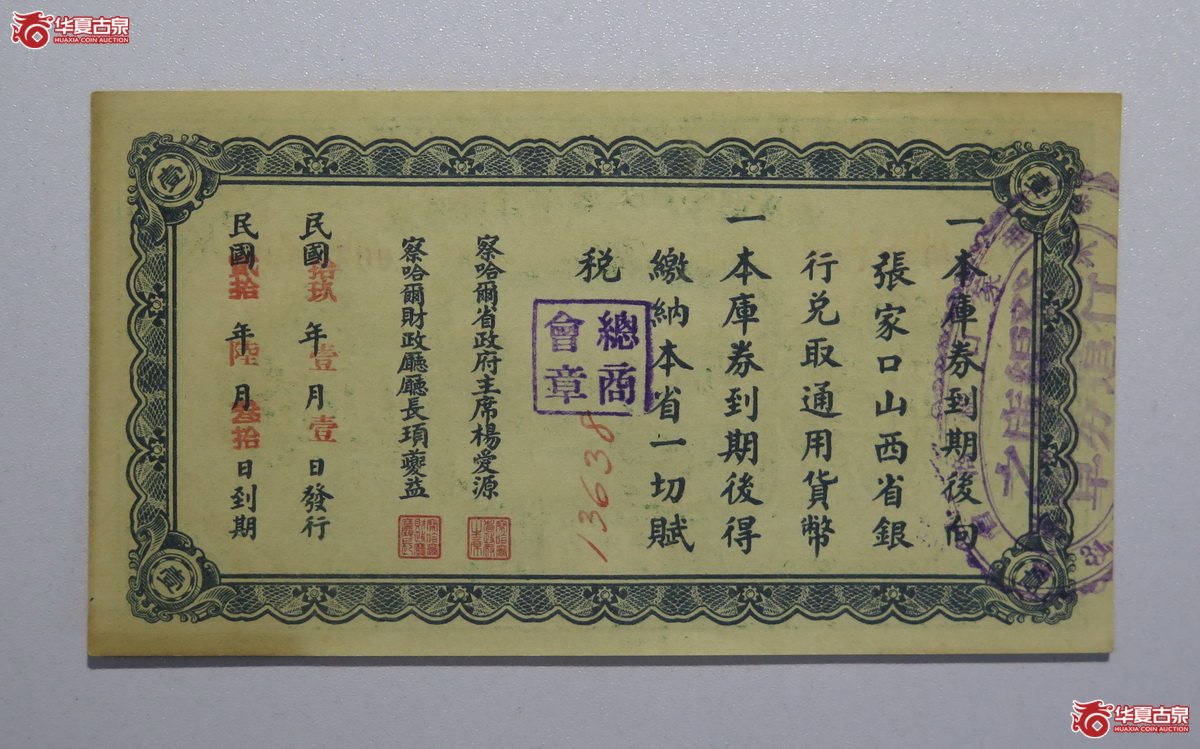 华夏古泉
HUAXIA COIN AUCTION
壹
壹
一本庫券到期後向
張家口山西省銀
行兌取通用貨幣
一本庫券到期後得
繳納本省一切賦
稅
總商
會章
13638
察哈爾省政府主席楊愛源
察哈爾財政廳廳長項夔益
民國拾玖年壹月壹日發行
民國貳拾年陸月叁拾日到期
壹
壹
华夏古泉
HUAXIA COIN AUCTION